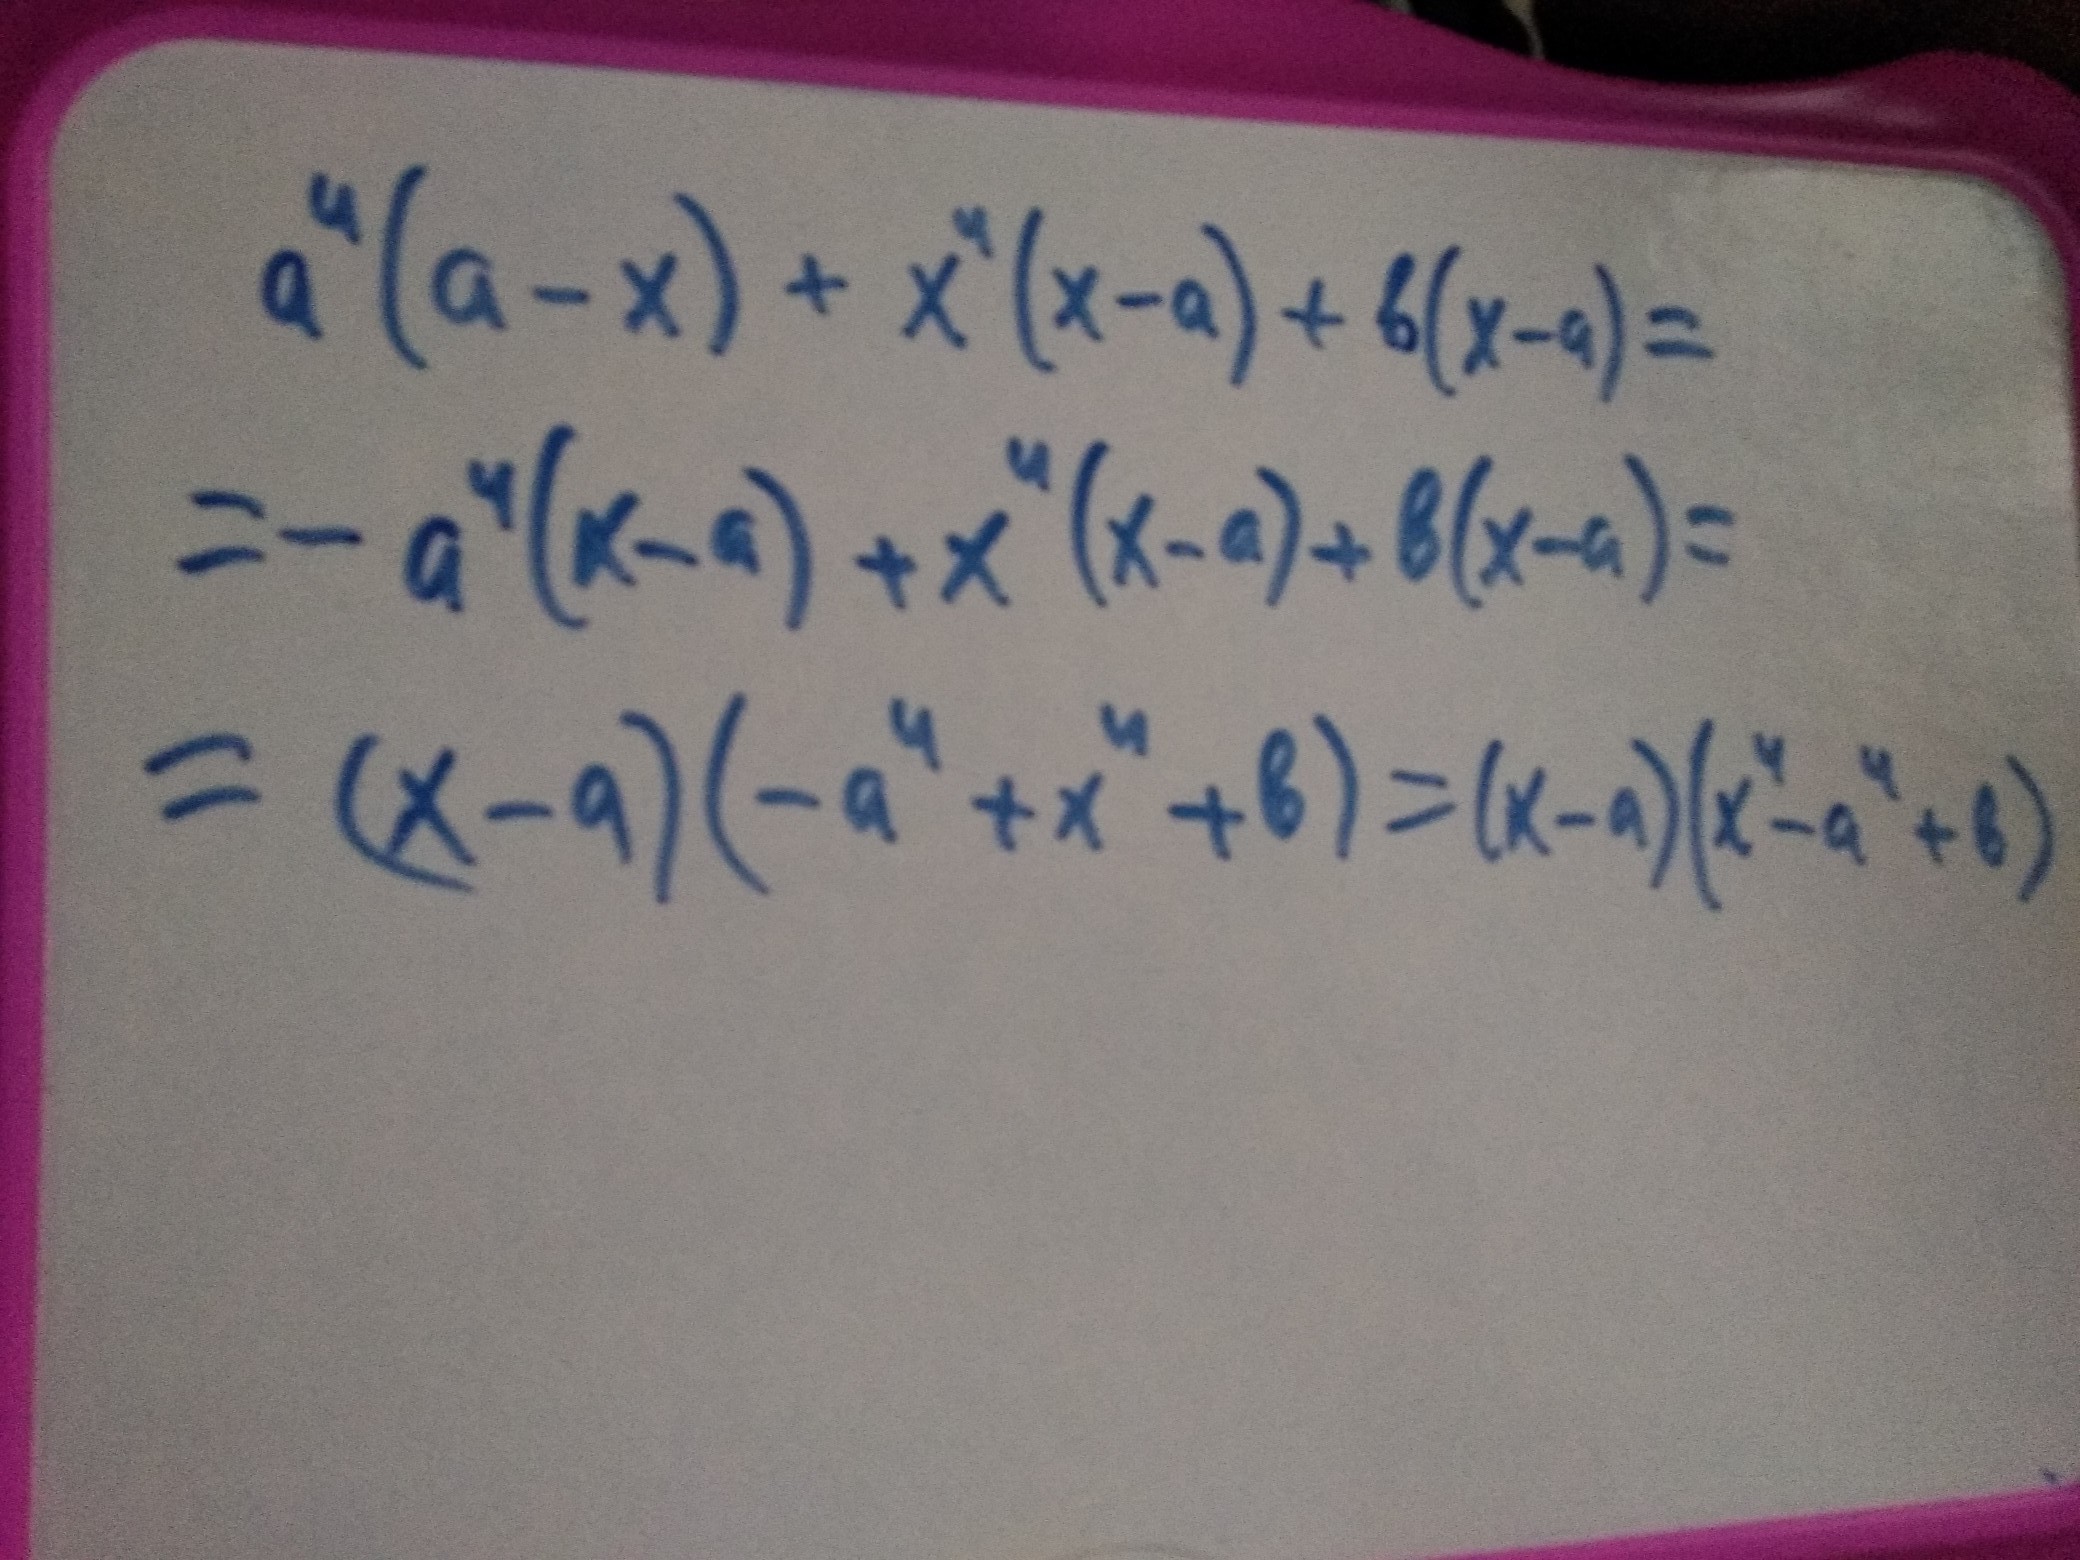 a⁴(a-x) + x⁴(x-a) + b(x-a) =
= - a⁴(x-a) + x⁴(x-a) + b(x-a) =
= (x-a)(-a⁴ + x⁴ + b) = (x-a)(x⁴-a⁴+b)